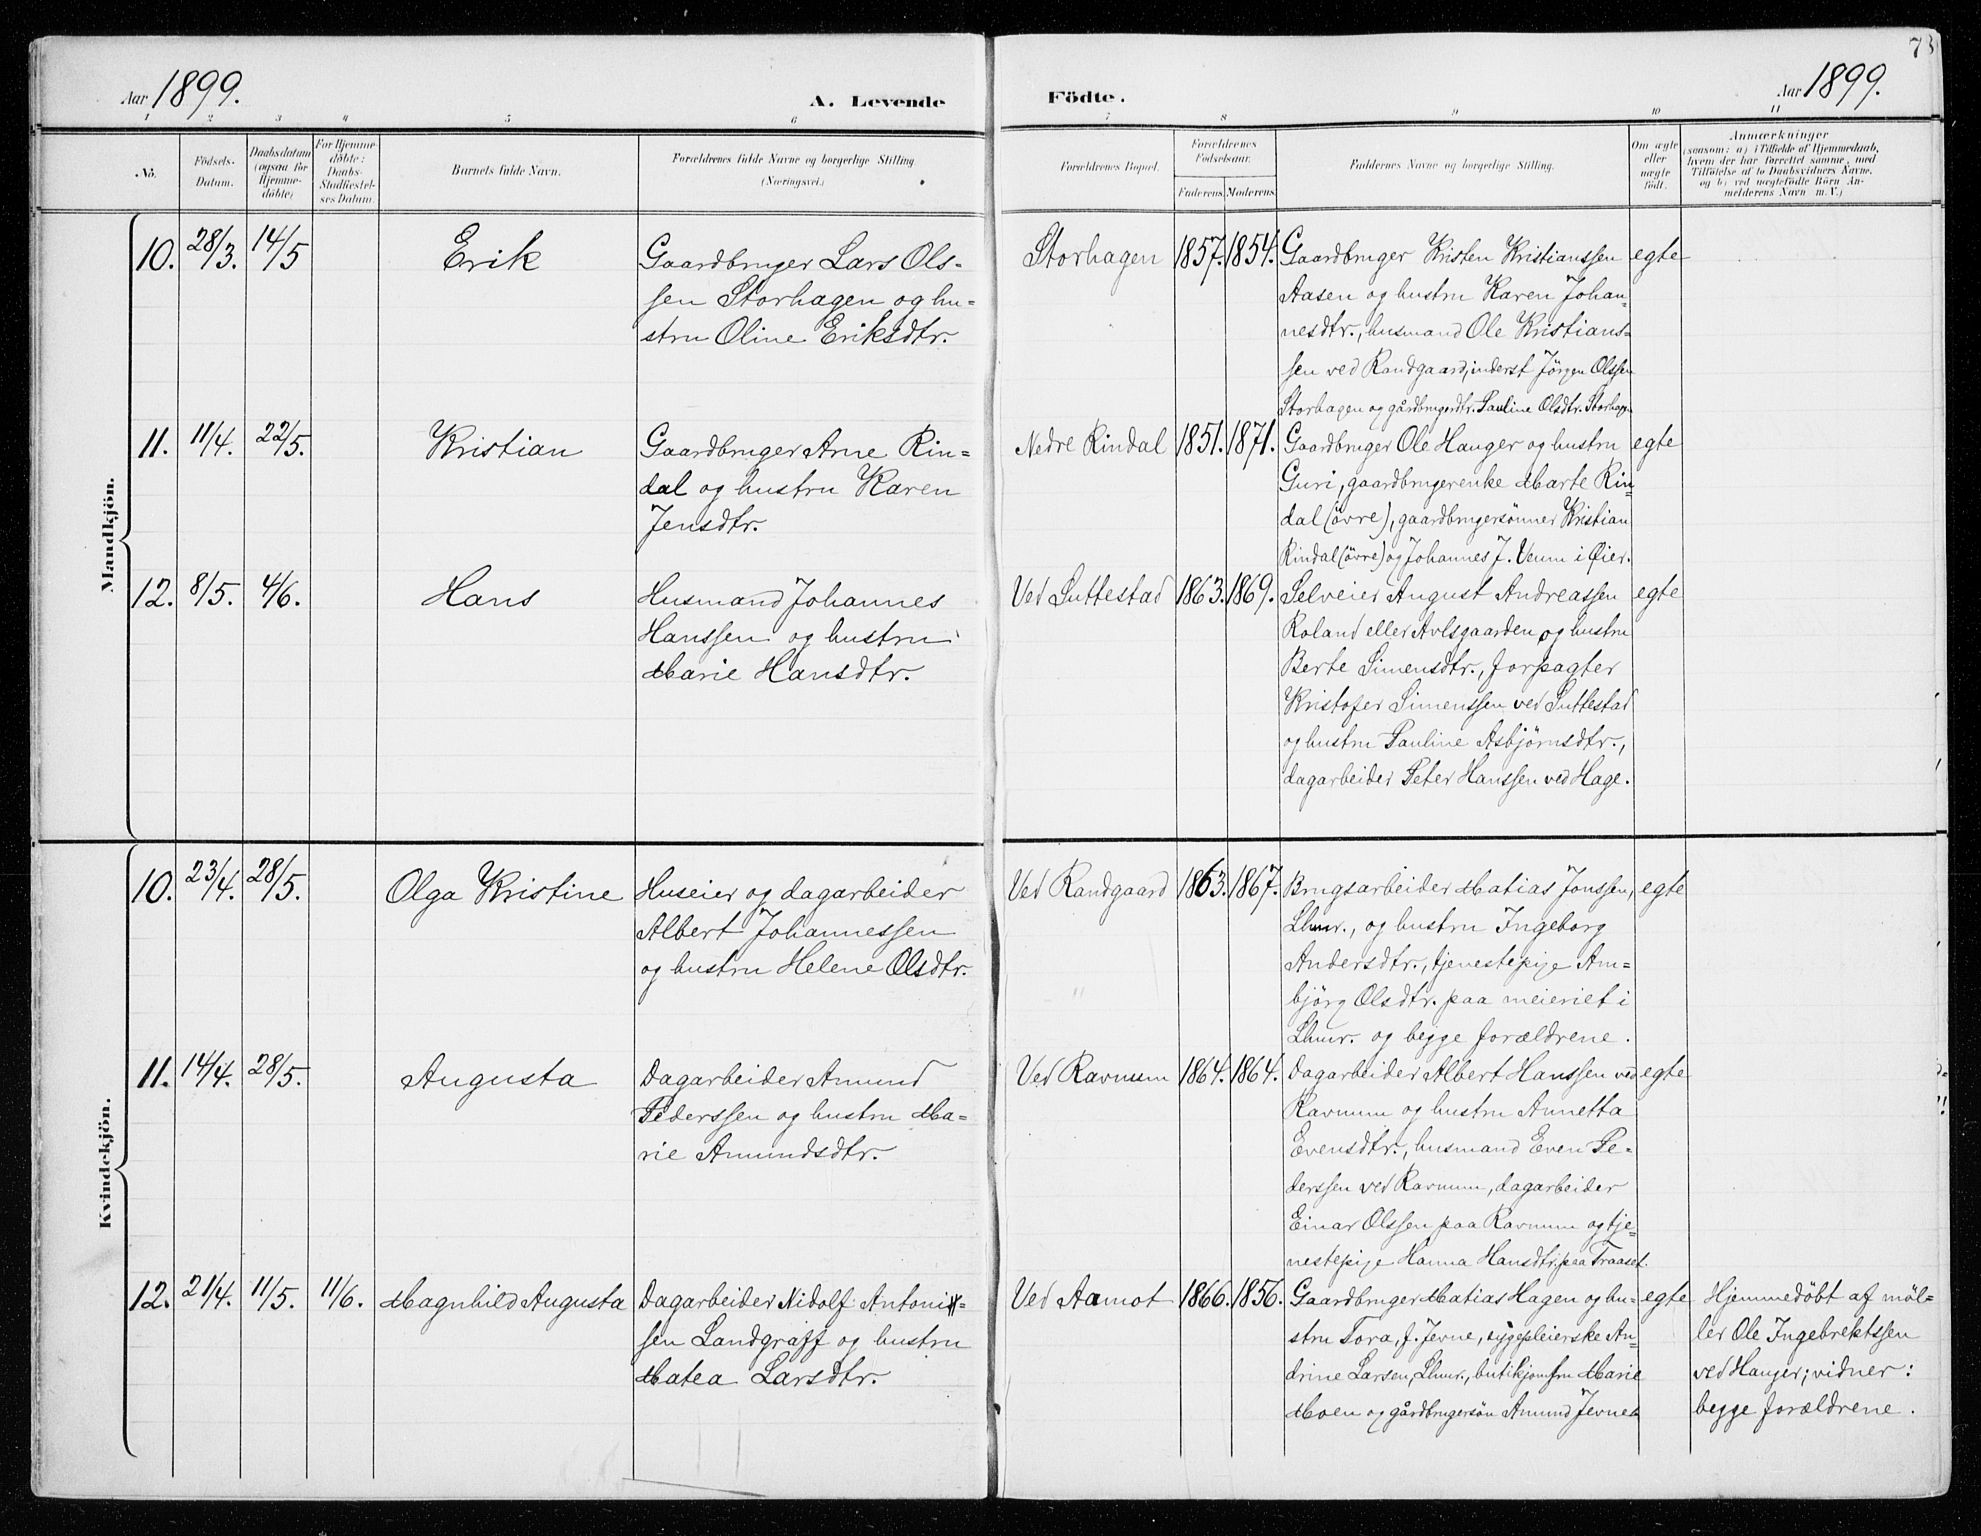 73
Aar 1899.
A. Levende
Födte.
Aar 1899.
1 2 3 4 5 6 7 8 9 10 11
No.
Födsels-
Datum.
Daabsdatum
(ogsaa for
Hjemme-
döbte)
For Hjemme-
döbte:
Daabs-
Stadfæstel-
ses Datum.
Barnets fulde Navn.
Forældrenes fulde Navne og borgerlige Stilling
(Næringsvei.)
Forældrenes Bopæl.
Forældrenes
Födselsaar.
Faderens. Moderens.
Faddernes Navne og borgerlige Stilling.
Om ægte
eller
uægte
födt.
Anmærkninger
(saasom: a) i Tilfælde af Hjemmedaab,
hvem der har forrettet samme, med
Tilföielse af to Daabsvidners Navne,
og b) ved uægtefödte Börn An-
melderens Navn m.V.)
Mandkjön.
10. 28/3. 14/5 Erik
Gaardbruger Lars Ols-
sen Storhagen og hu-
stru Oline Eriksdtr.
Storhagen 1857. 1854.
Gaardbruger Kristen Kristianssen
Aasen og hustru Karen Johan-
nesdtr., husmand Ole Kristians-
sen ved Randgaard, inderst Jörgen Olssen
Storhagen og gårdbrugerdtr. Pauline Olsdtr. Storhagen
egte
11. 11/4. 22/5. Kristian
Gaardbruger Arne Rin-
dal og hustru Karen
Jensdtr.
Nedre Rindal 1851. 1871.
Gaardbruger Ole Hauger og hustru
Guri, gaardbrugerenke Marte Rin-
dal (övre), gaardbrugersönner Kristian
Rindal (övre) og Johannes J. Venn i Öier.
egte
12. 8/5. 4/6. Hans
Husmand Johannes
Hanssen og hustru
Marie Hansdtr.
Ved Suttestad 1863. 1869.
Selveier August Andreassen
Roland eller Avlsgaarden og hustru
Berte Simensdtr., forpagter
Kristofer Simenssen ved Suttestad
og hustru Pauline Asbjörnsdtr.,
dagarbeider Peter Hanssen ved Hage.
egte
Kvindekjön.
10. 23/4. 28/5. Olga Kristine
Huseier og dagarbeider
Albert Johannessen
og hustru Helene Olsdtr.
Ved Randgaard 1863. 1867.
Brugsarbeider Matias Jonssen,
Lhmr., og hustru Ingeborg
Andersdtr., tjenestepige Am-
björg Olsdtr. paa meieriet i
Lhmr. og begge forældrene.
egte
11. 14/4. 28/5. Augusta
Dagarbeider Amund
Pederssen og hustru Ma-
rie Amundsdtr.
Ved Ravnum 1864. 1864.
Dagarbeider Albert Hanssen ved
Ravnum og hustru Annetta
Evensdtr., husmand Even Pe-
derssen ved Ravnum, dagarbeider
Einar Olssen paa Ravnum og tje-
nestepige Hanna Hansdtr. paa Traaset.
egte
12. 21/4. 11/5. 11/6. Magnhild Augusta
Dagarbeider Nidolf Antoni-
sen Landgraff og hustru
Matea Larsdtr.
Ved Aamot 1866. 1856.
Gaardbruger Matias Hagen og hu-
stru Tora, f. Jevne, sygepleierske An-
drine Larsen, Lhmr., butikjomfru Marie
Moen og gårdbrugersön Amund Jevne
egte
Hjemmedöbt af möl-
ler Ole Ingebrektssen
ved Hauger; vidner:
begge forældrene.